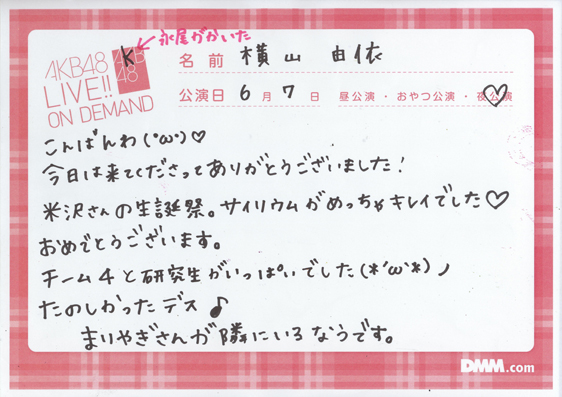 永尾がかいた
K
AKB48
LIVE!!
ON DEMAND
AKB
48
名前 横山 由依
公演日 6月7日 昼公演・おやつ公演・夜公演
こんばんわ(・ω・)♡
今日は来てくださってありがとうございました!
米沢さんの生誕祭。サイリウムがめっちゃキレイでした♡
おめでとうございます。
チーム4と研究生がいっぱいでした(*´ω`*)ノ
たのしかったデス♪
まりやぎさんが隣にいるなうです。
DMM.com